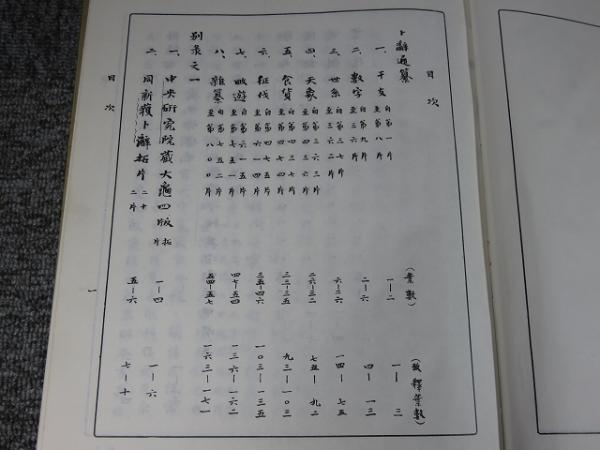 目次
卜辭通纂
(葉數)
(攷釋葉數)
一、干支 自第一片 至第八片 一—二 一—三
二、數字 自第九片 至三六片 二—六 四—一三
三、世系 自第三七片 至三六二片 六—二六 一四—七五
四、天象 自第三六三片 二六—三二 七五—九二
五、食貨 三二—三五 九三—一〇三
六、征伐 自第四七五片 至第六一四片 三五—四六 一〇三—一三五
七、畋遊 自第六一五片 至第七五一片 四七—五四 一三六—一六二
八、雜纂 自第七五二片 至第八〇〇片 五四—五七 一六三—一七一
別录之一
一、中央研究院藏大龜四版拓片 一—四 一—六
二、同新獲卜辭拓片 二十二片 五—六 七—十
目次
一